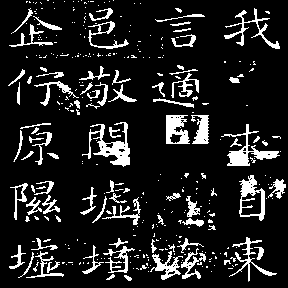 我來自東
言適茲
邑敬問墟墳
企佇原隰墟